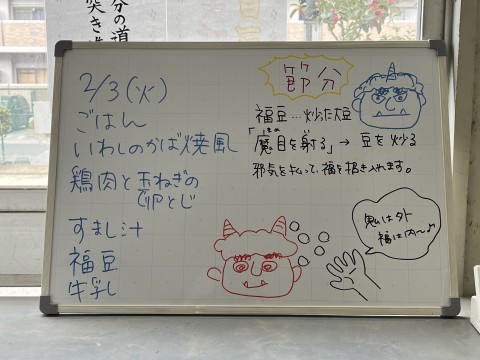 分の道
突き
2/3(火)
ごはん
いわしのかば焼風
鶏肉と玉ねぎの
卵とじ
すまし汁
福豆
牛乳
節分
福豆…炒った大豆
「魔目を射る」→豆を炒る
邪気を払って、福を招き入れます。
鬼は外
福は内〜♪